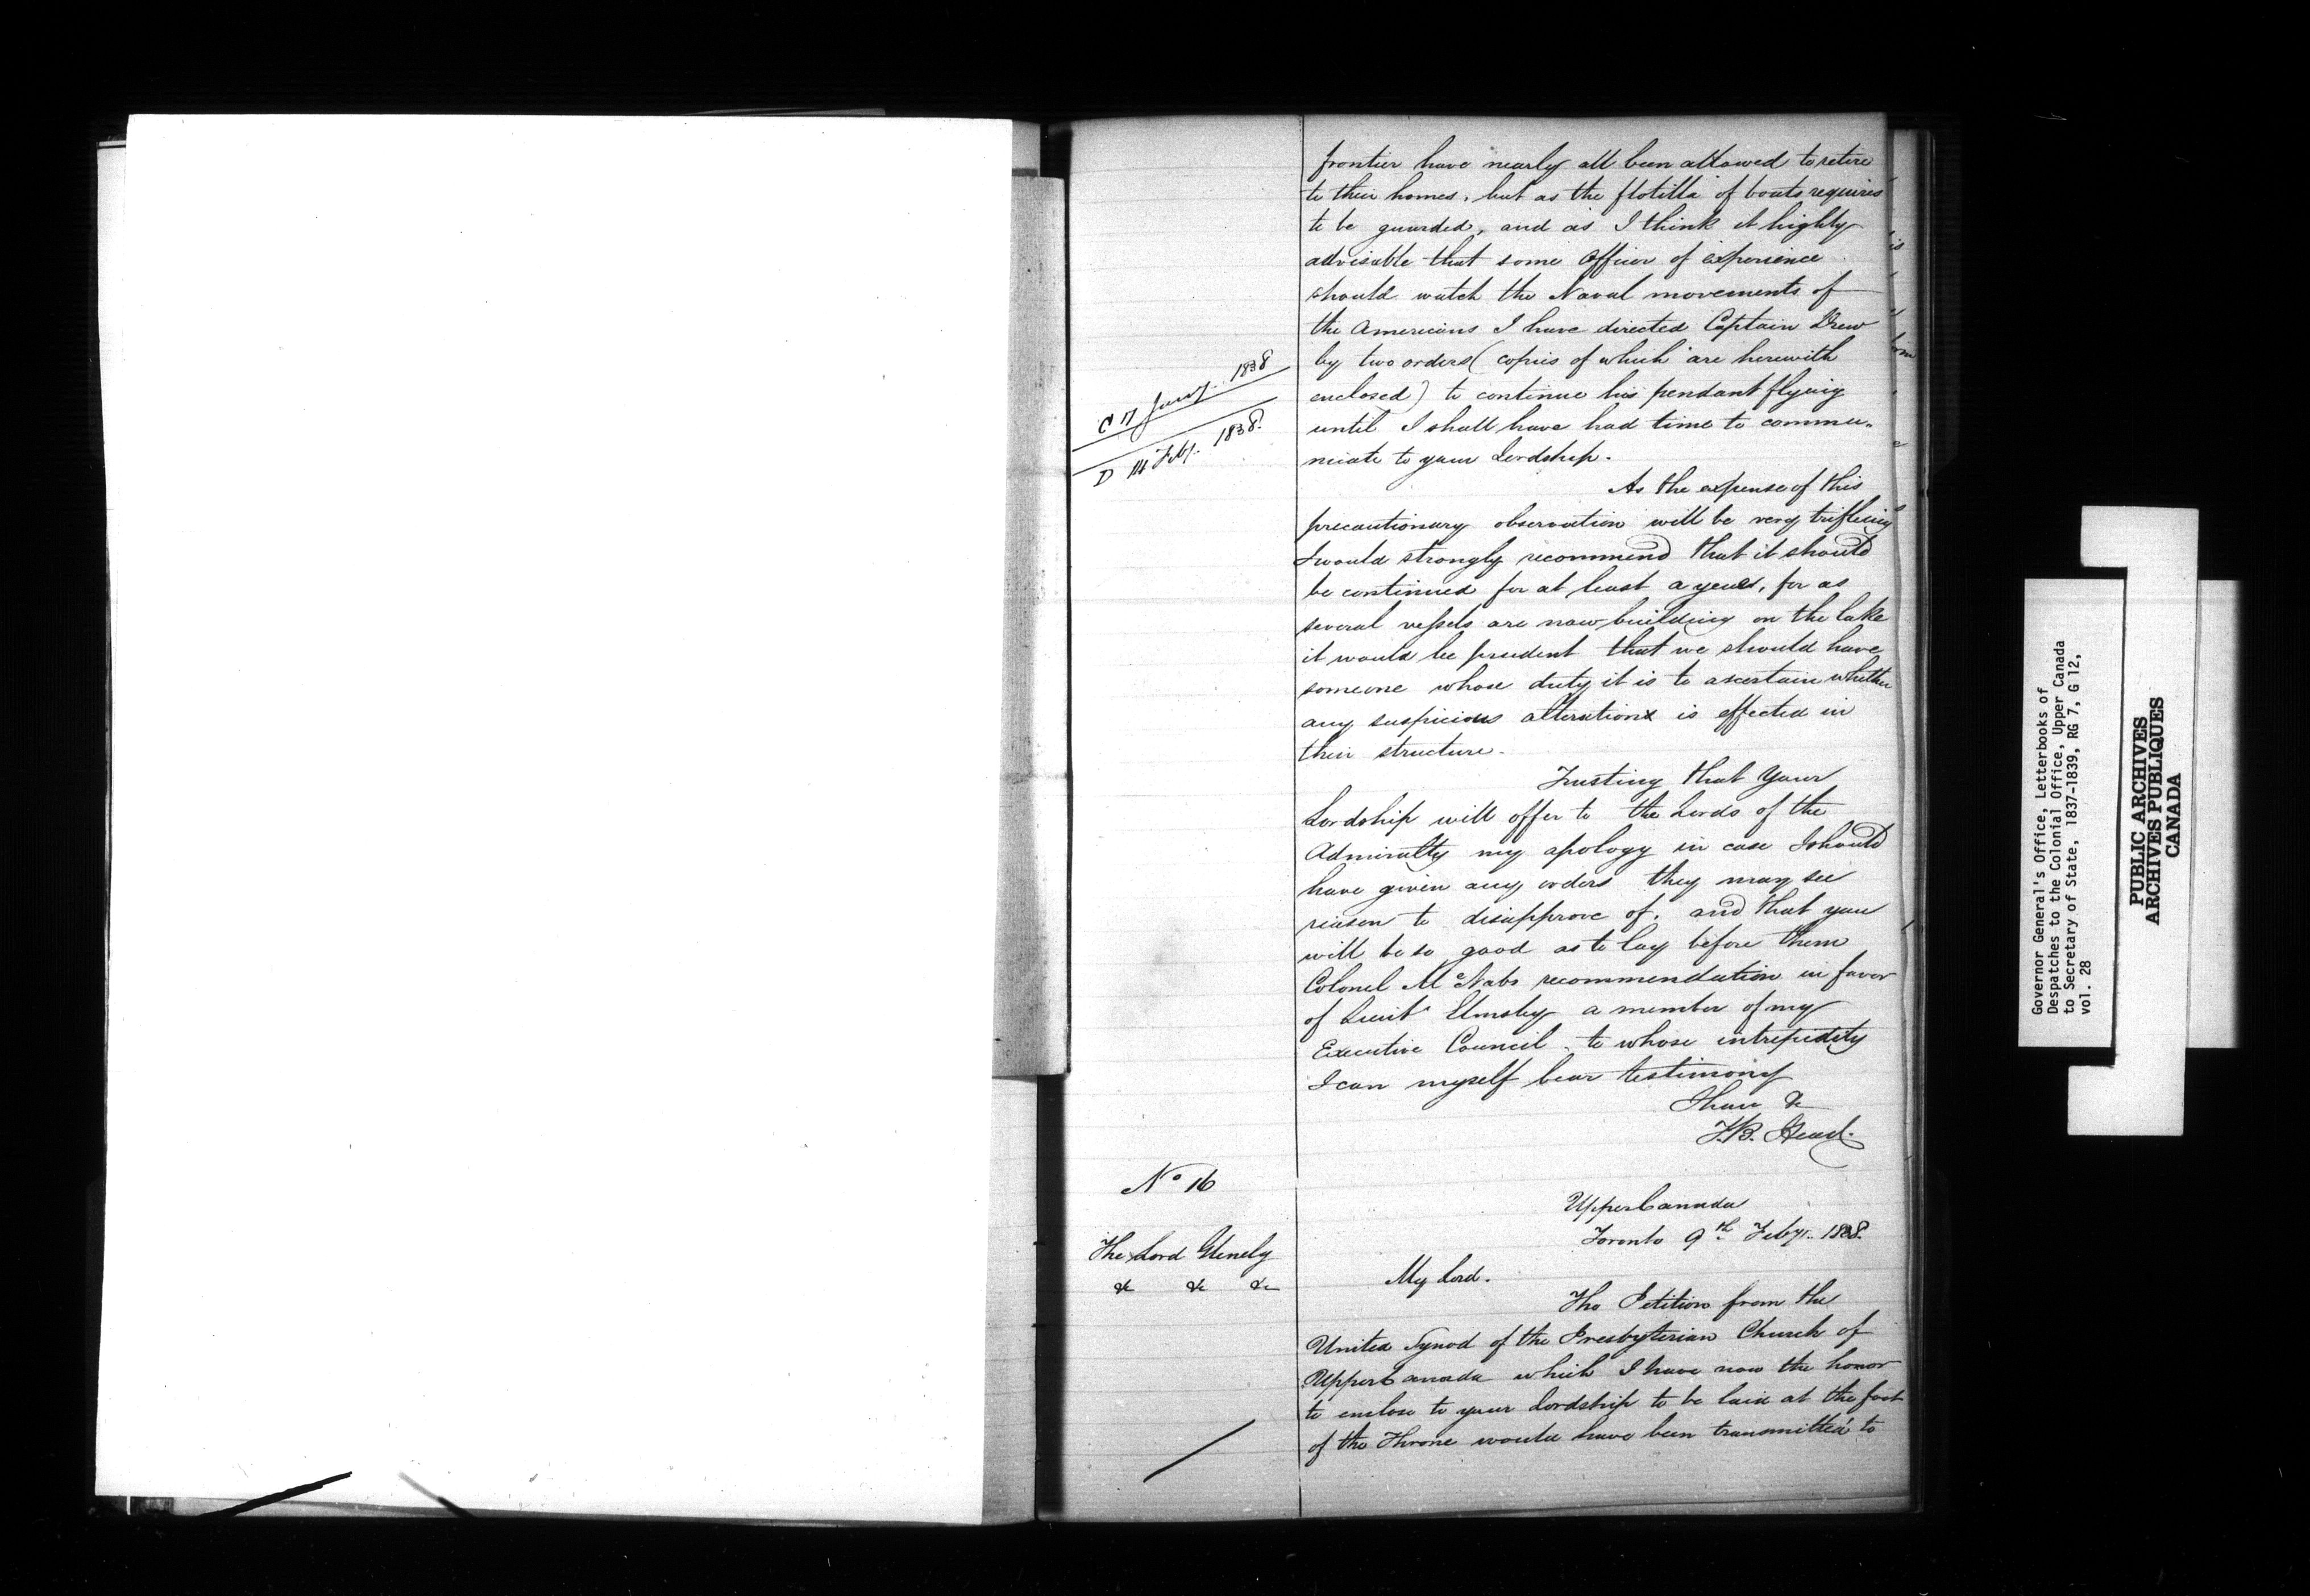 frontier have nearly all been allowed to retire
to their homes, but as the flotilla of boats requires
to be guarded, and as I think it highly
advisable that some Officer of experience
should watch the Naval movements of
the Americans I have directed Captain Drew
by two orders (copies of which are herewith
enclosed) to continue his pendant flying
until I shall have had time to commu-
nicate to your Lordship.
C 17 Jany. 1838
D 14 Feby. 1838.
As the expense of this
precautionary observation will be very trifling
I would strongly recommend that it should
be continued for at least a year, for as
several vessels are now building on the lake
it would be prudent that we should have
someone whose duty it is to ascertain whether
any suspicious alteration is effected in
their structure.
Trusting that Your
Lordship will offer to the Lords of the
Admiralty my apology in case I should
have given any orders they may see
reason to disapprove of, and that you
will be so good as to lay before them
Colonel McNabs recommendation in favor
of Lieut Elmsley a member of my
Executive Council, to whose intrepidity
I can myself bear testimony
I have &c
F.B. Head.
No 16
The Lord Glenelg
&c &c &c
Upper Canada
Toronto 9th Feby. 1838.
My Lord.
The Petition from the
United Synod of the Presbyterian Church of
Upper Canada which I have now the honor
to enclose to your Lordship to be laid at the foot
of the Throne would have been transmitted to
Governor General's Office, Letterbooks of
Despatches to the Colonial Office, Upper Canada
to Secretary of State, 1837-1839, RG 7, G 12,
vol. 28
PUBLIC ARCHIVES
ARCHIVES PUBLIQUES
CANADA